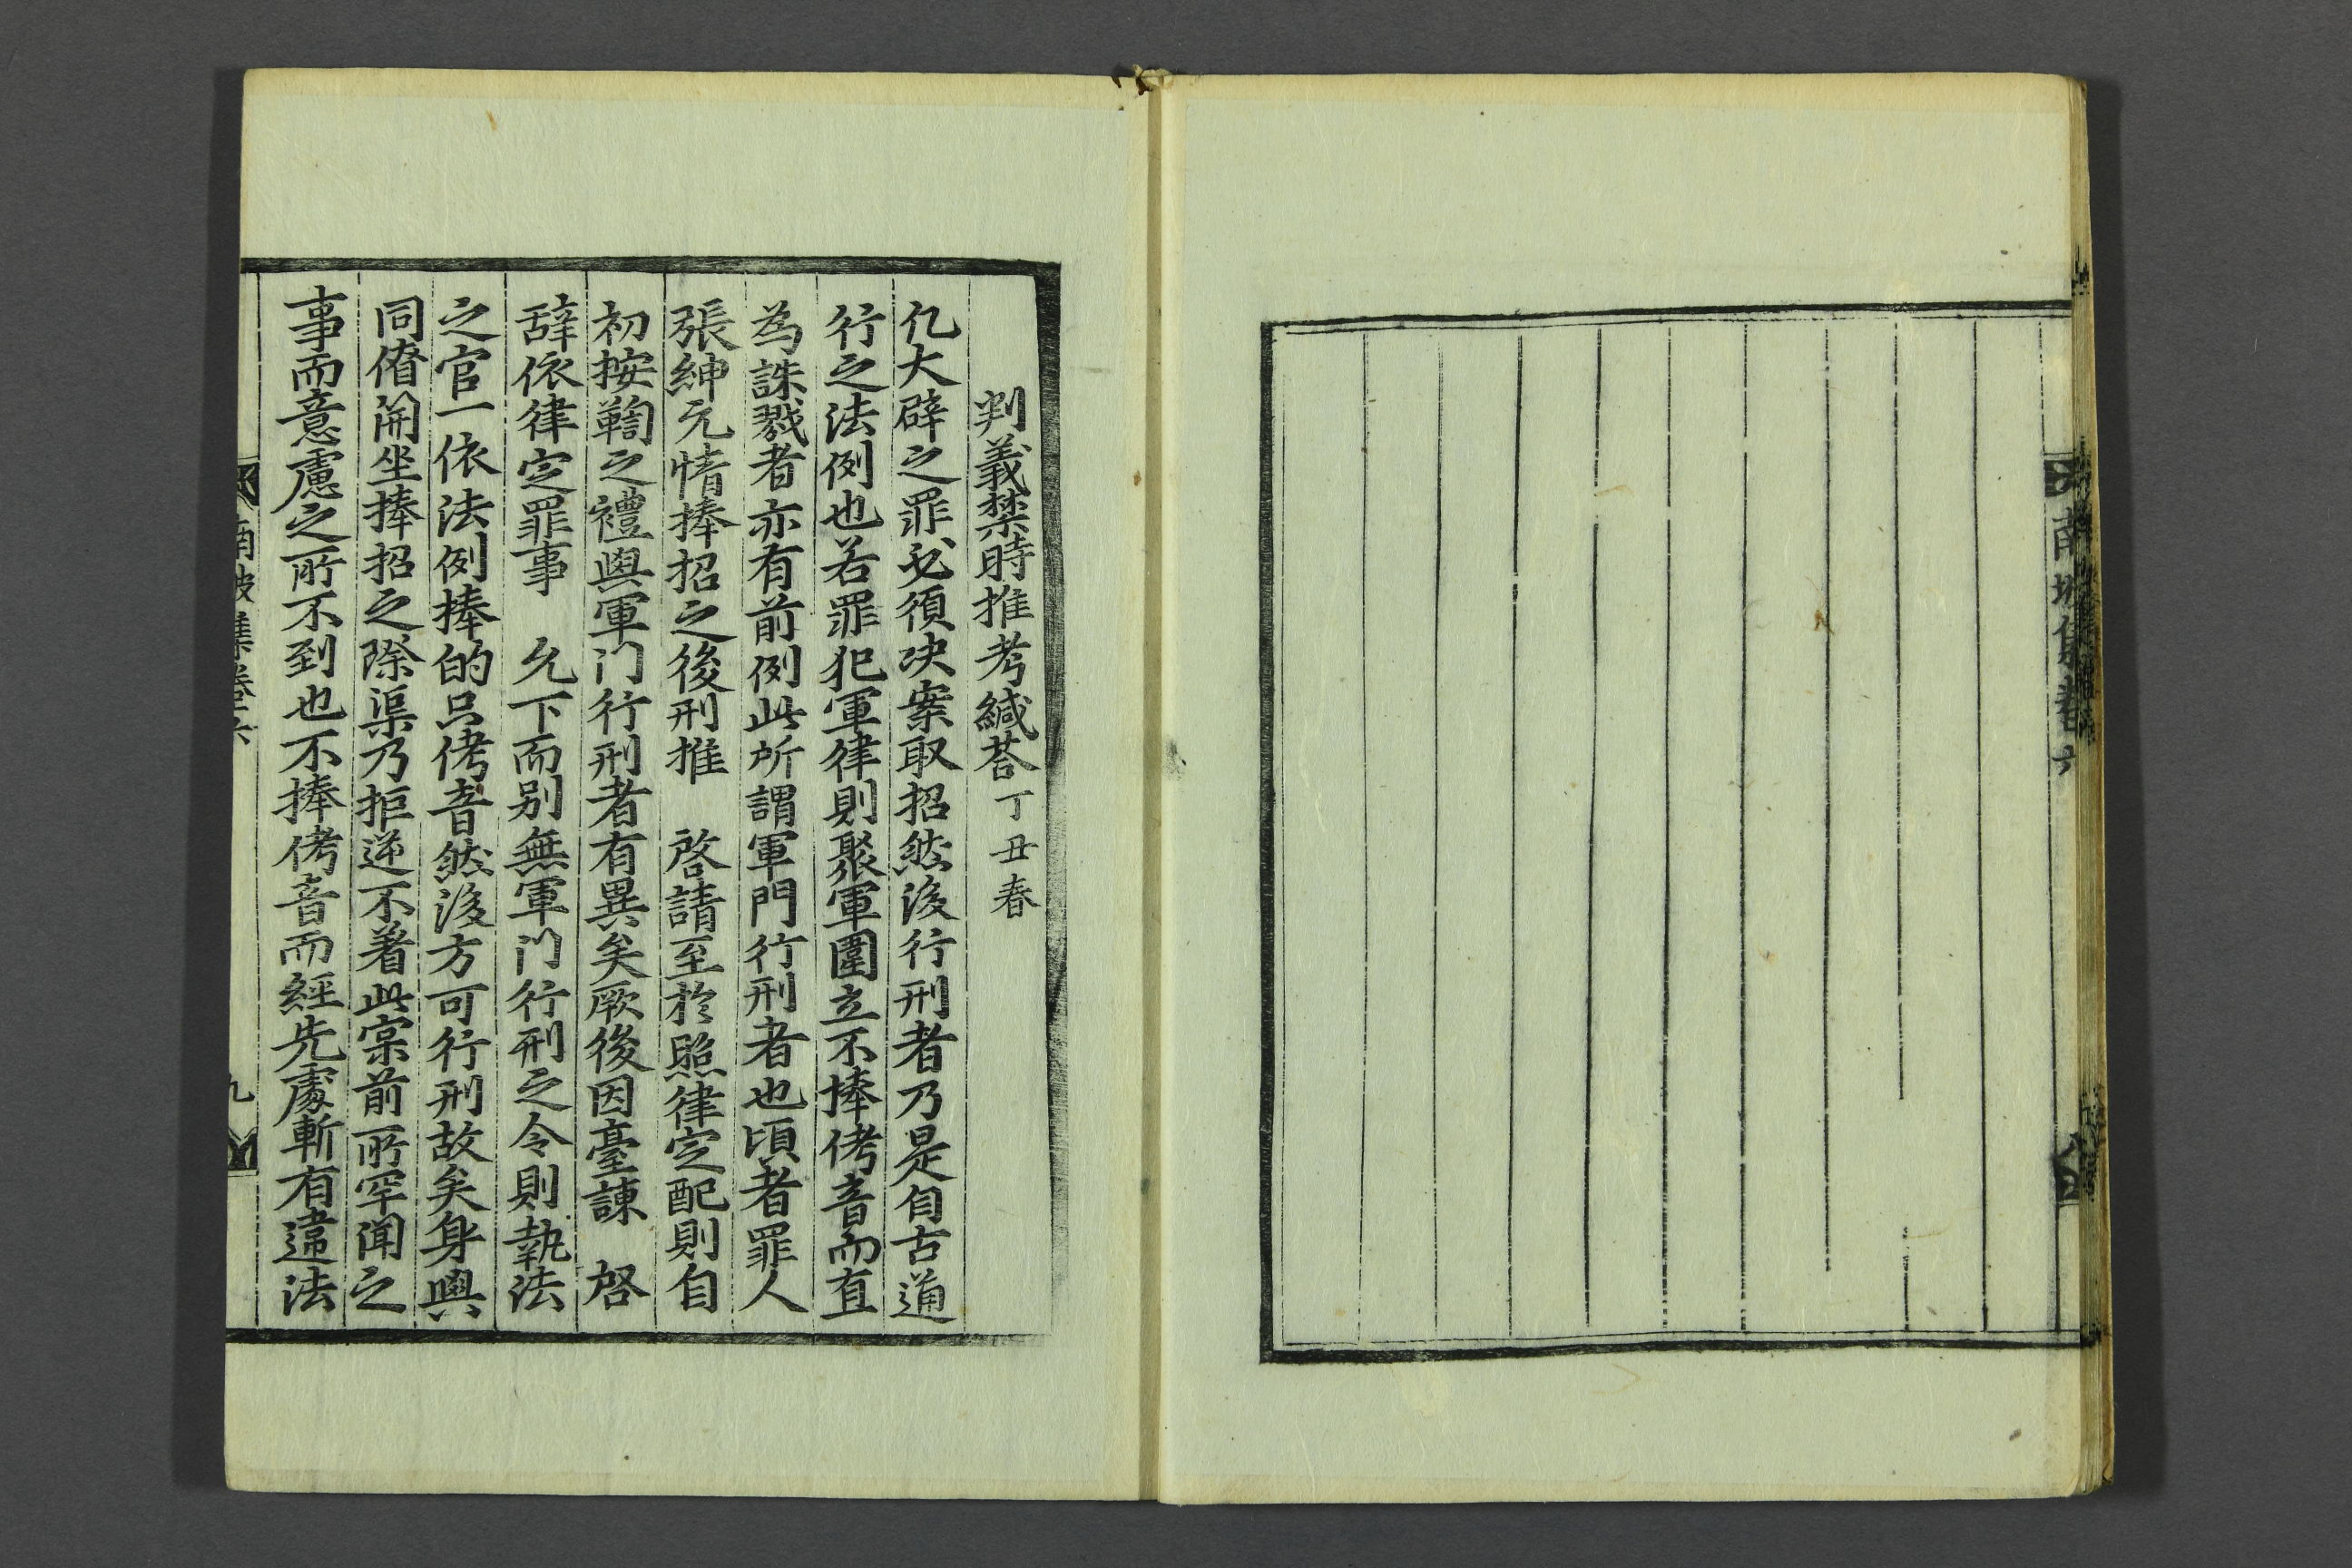 南坡集卷六
八
判義禁時推考緘荅 丁丑春
凡大辟之罪必須决案取招然後行刑者乃是自古通
行之法例也若罪犯軍律則聚軍圍立不捧侤音而直
為誅戮者亦有前例此所謂軍門行刑者也頃者罪人
張紳元情捧招之後刑推 啓請至於照律定配則自
初按鞫之禮與軍门行刑者有異矣厥後因臺諫 啓
辞依律定罪事 允下而别無軍门行刑之令則執法
之官一依法例捧的只侤音然後方可行刑故矣身與
同僚開坐捧招之際渠乃拒逆不着此寔前所罕聞之
事而意慮之所不到也不捧侤音而經先處斬有違法
南坡集卷六
九